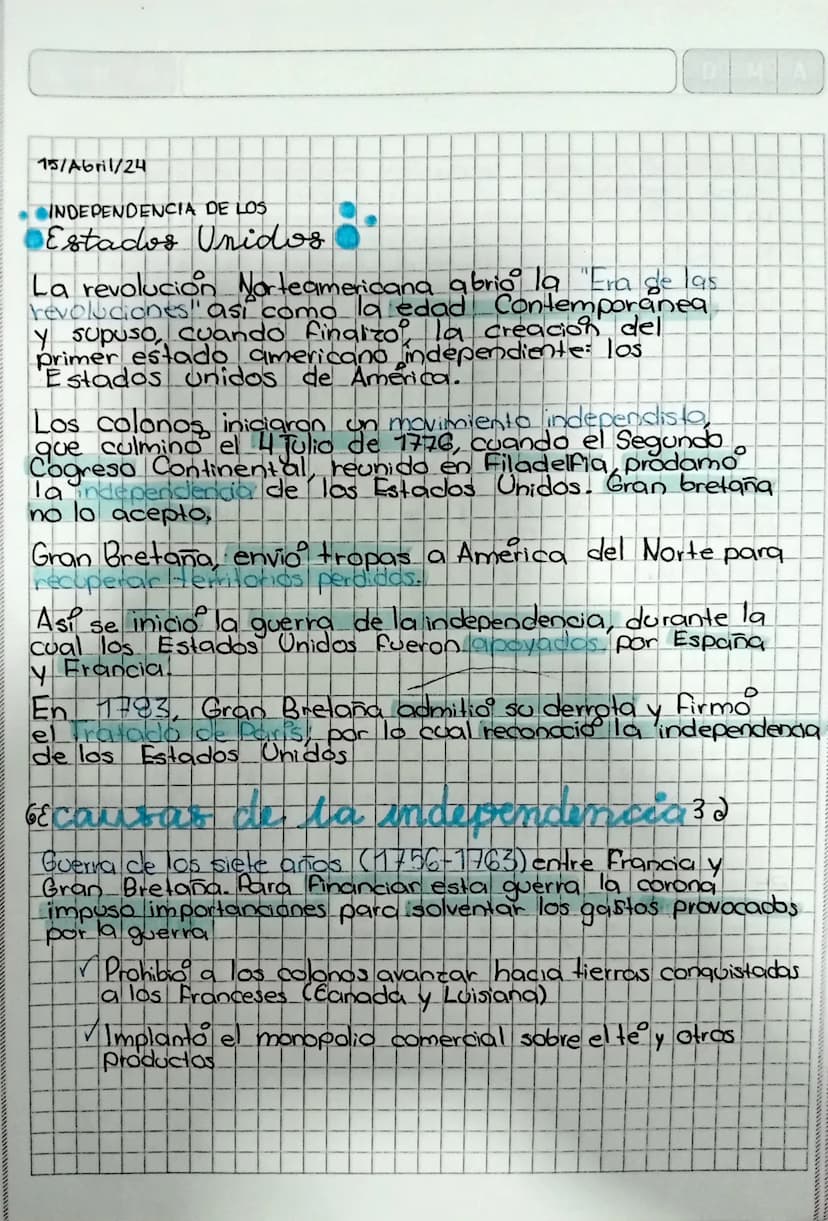 15/Abril/24
INDEPENDENCIA DE LOS
Estados Unidos
La revolución Norteamericana abrió la "Era de las
revoluciones" así como la edad Contemporánea
y supuso, cuando finalizó, la creación del
primer estado americano independiente: los
Estados unidos de América.
Los colonos iniciaron un movimiento independista,
que culminó el 4 Julio de 1776, cuando el Segundo
Cogreso Continental, reunido en Filadelfia, proclamó
la independencia de los Estados Unidos. Gran bretaña
no lo acepto,
Gran Bretaña, envió tropas a América del Norte para
recuperar territorios perdidos.
Así se inició la guerra de la independencia, durante la
cual los Estados Unidos fueron apoyados por España
y Francia.
En 1783, Gran Bretaña admitió su derrota y firmó
el Tratado de París, por lo cual reconoció la independencia
de los Estados Unidos
causas de la independencia
Guerra de los siete años (1756-1763) entre Francia y
Gran Bretaña. Para financiar esta guerra la corona
impuso importanciones para solventar los gastos provocados
por la guerra
✓ Prohibió a los colonos avanzar hacia tierras conquistadas
a los Franceses (Canada y Luisiana)
✓ Implantó el monopolio comercial sobre el té y otros
productos